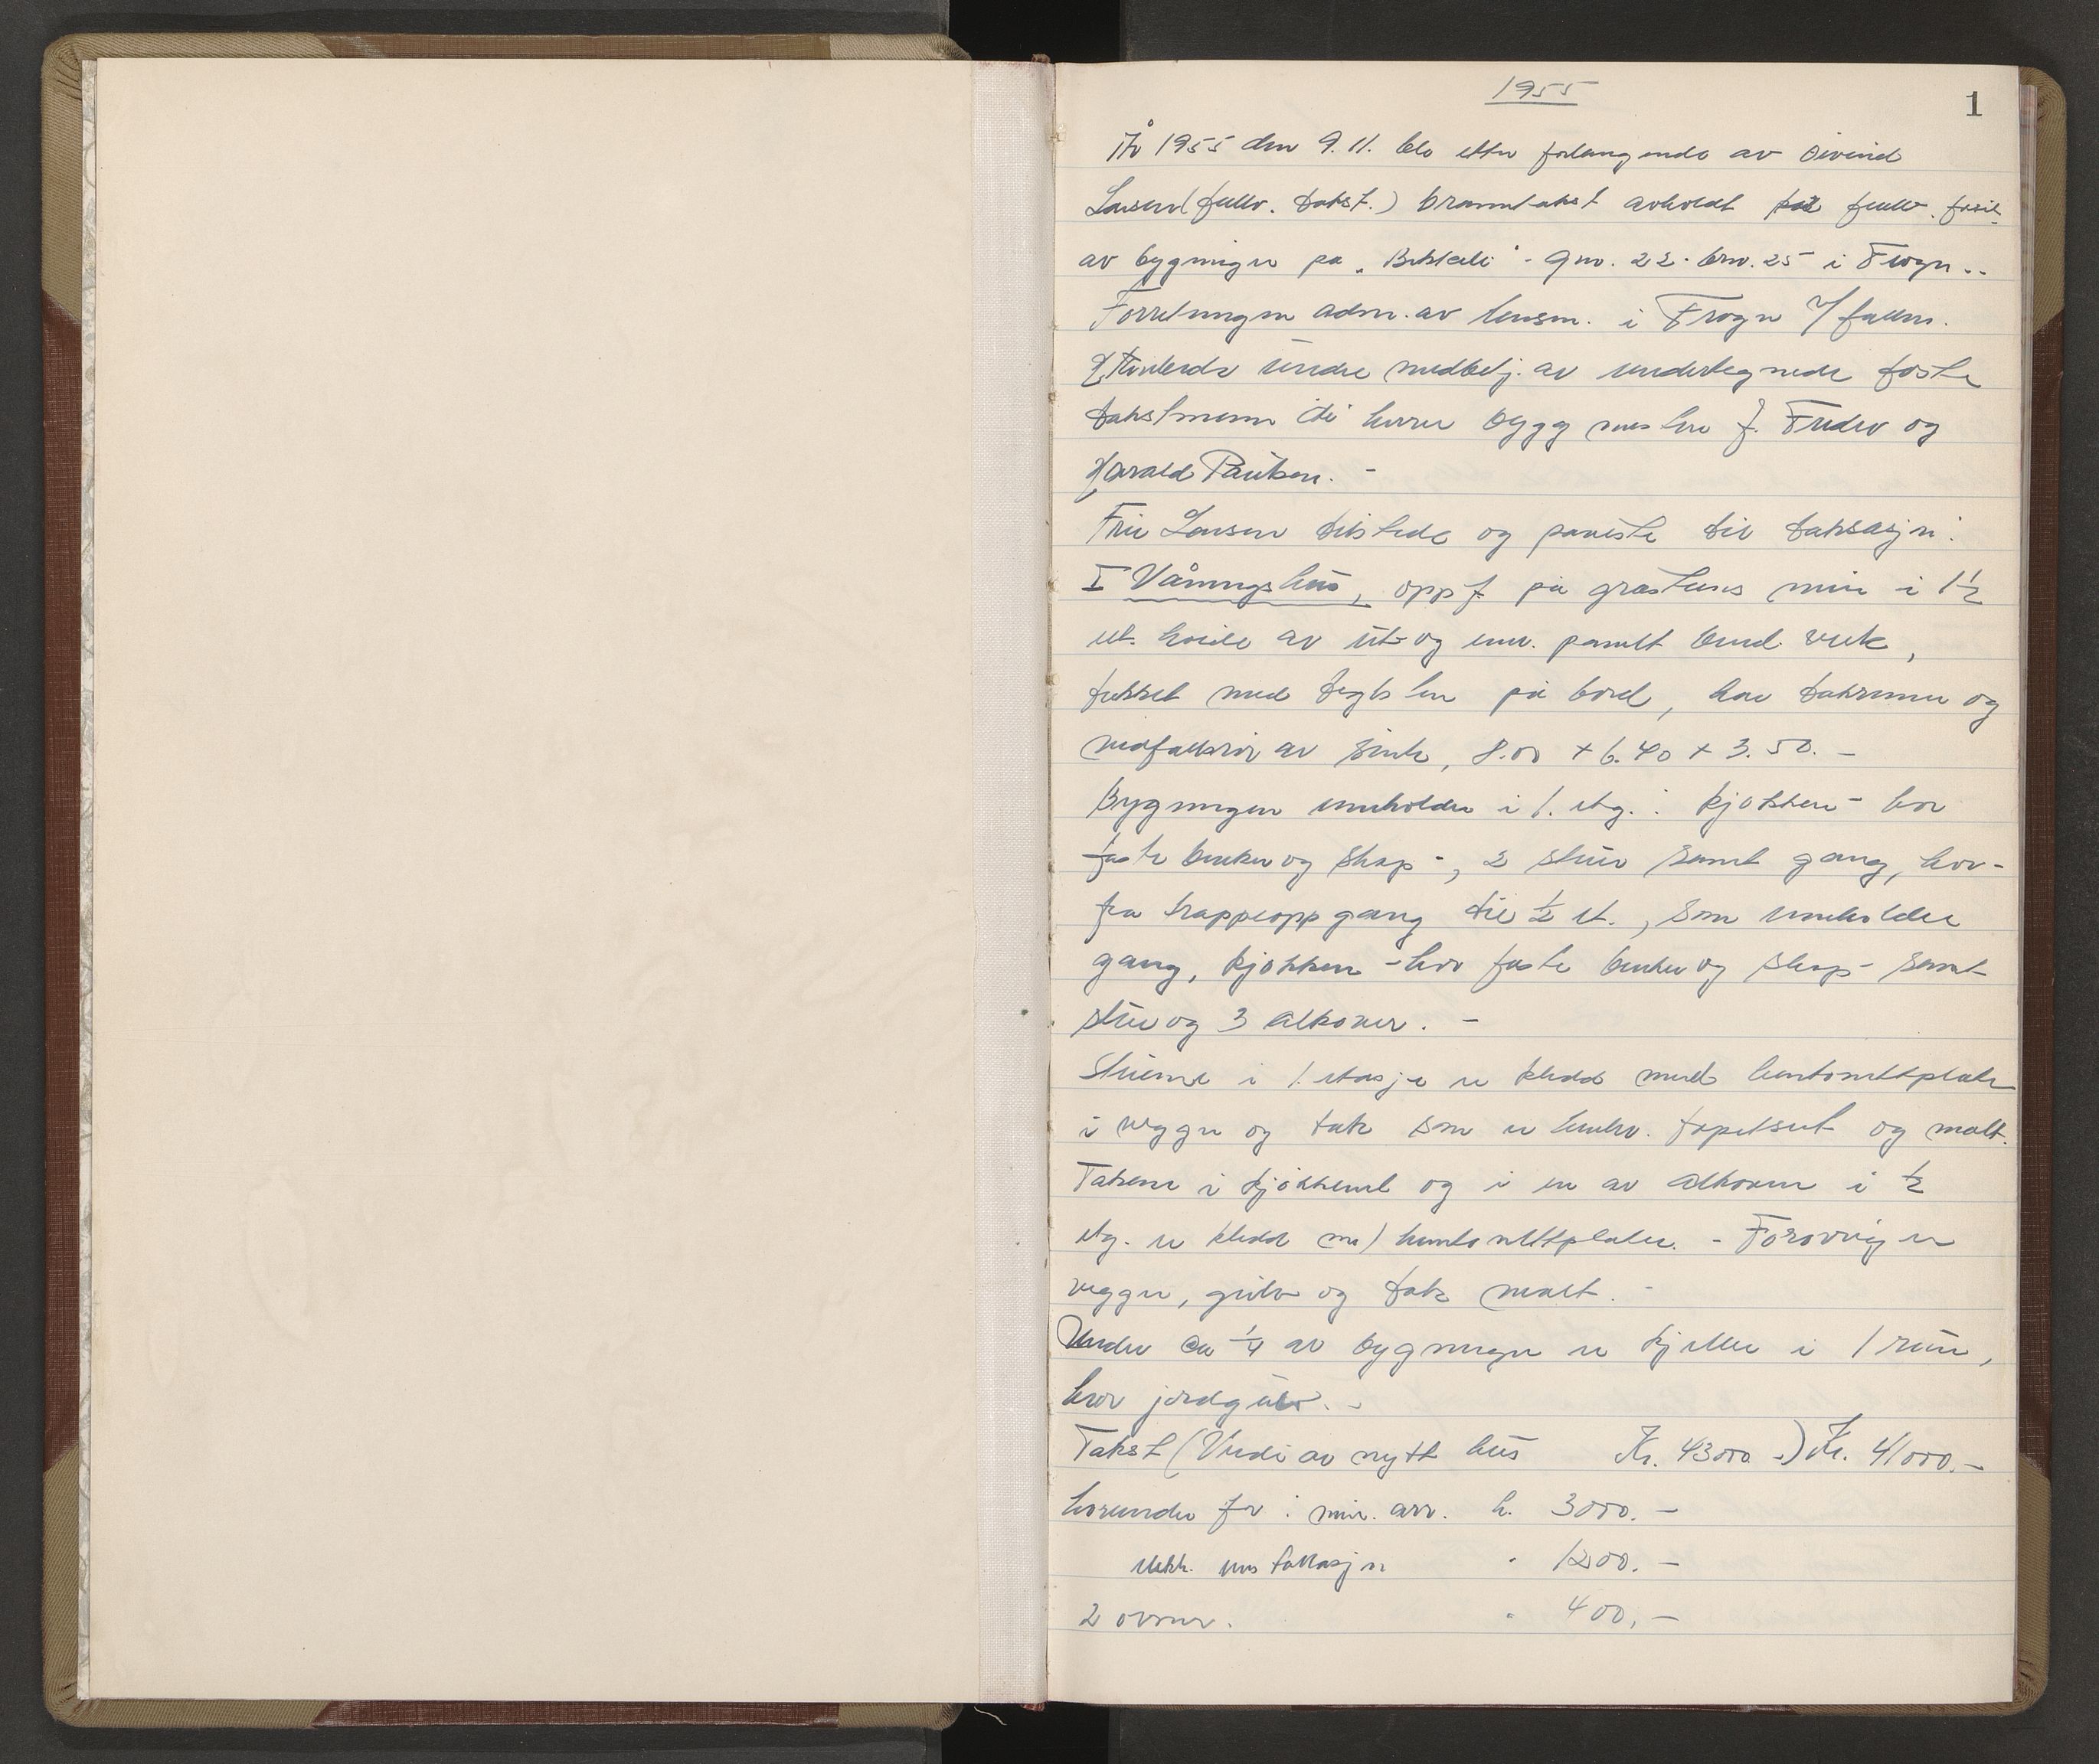 1955
1
År 1955 den 9.11. ble etter forlangende av Øivind
Larsen (fullst. takst.) branntakst avholdt
av bygninger på "Bekkeli" - gnr. 22 - brnr. 25 i Frogn..
Forretningen adm. av lensm. i Frogn v/fullm.
under medbetj. av undertegnede faste
takstmenn de herrer byggmestre J. Fredev og
Harald Paulsen. -
Fru Larsen tilstede og påviste til taksasjon:
I Våningshus, oppf. på gråsteins mur i 1½
et. høide av ut- og innv. panelt bind. verk,
tekket med teglsten på bord, har takrenner og
nedfallsrør av sink, 8.00 + 6.40 + 3.50. -
Bygningen inneholder i 1. etg.: kjøkken - hvor
faste benker og skap -, 2 stuer samt gang, hvor-
fra trappeoppgang til ½ et., som inneholder
gang, kjøkken - hvor faste benker og skap - samt
stue og 3 alkover. -
Stuene i 1. etasje er kledd med huntonittplater
i vegger og tak som er henhv. tapetsert og malt.
Takene i kjøkkenet og i en av alkovene i ½
etg. er kledd m) huntonittplater. - Forøvrig er
vegger, gulv og tak malt. -
Under ca ¼ av bygningen er kjeller i 1 rum,
hvor jordgulv. -
Takst (Verdi av nytt hus Kr. 43000.-) Kr. 41000.-
hvorunder for: mur. arb. kr. 3000. -
elektr. installasjon " 1200. -
2 ovner. " 400. -